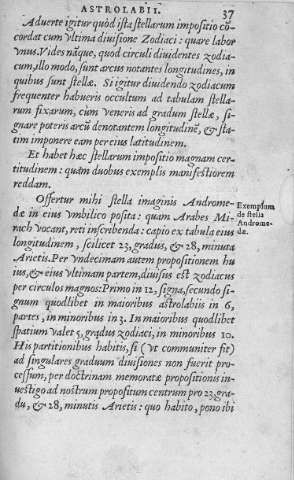 ASTROLABII. 37
Aduerte igitur quòd ista stellarum impositio cō-
cordat cum vltima diuisione Zodiaci: quare labor
vnus. Vides nãque, quod circuli diuidentes zodia-
cum, illo modo, sunt arcus notantes longitudines, in
quibus sunt stellæ. Si igitur diuidendo zodiacum
frequenter habueris occultum ad tabulam stella-
rum fixarum, cùm veneris ad gradum stellæ, si-
gnare poteris arcū denotantem longitudinē, & sta-
tim imponere eam per eius latitudinem.
Et habet hæc stellarum impositio magnam cer-
titudinem: quàm duobus exemplis manifestiorem
reddam.
Offertur mihi stella imaginis Androme-
dæ in eius vmbilico posita: quam Arabes Mi-
rach vocant, reti inscribenda: capio ex tabula eius
longitudinem, scilicet 23, gradus, & 28, minuta
Arietis. Per vndecimam autem propositionem hu
ius, & eius vltimam partem, diuisus est zodiacus
per circulos magnos: Primo in 12, signa, secundo si-
gnum quodlibet in maioribus astrolabiis in 6,
partes, in minoribus in 3. In maioribus quodlibet
spatium valet 5, gradus zodiaci, in minoribus 10.
His partitionibus habitis, si (vt communiter fit)
ad singulares graduum diuisiones non fuerit pro-
cessum, per doctrinam memoratæ propositionis in-
uestigo ad nostrum propositum centrum pro 23, gra-
du, & 28, minutis Arietis: quo habito, pono ibi
Exemplum
de stella
Androme-
dæ.